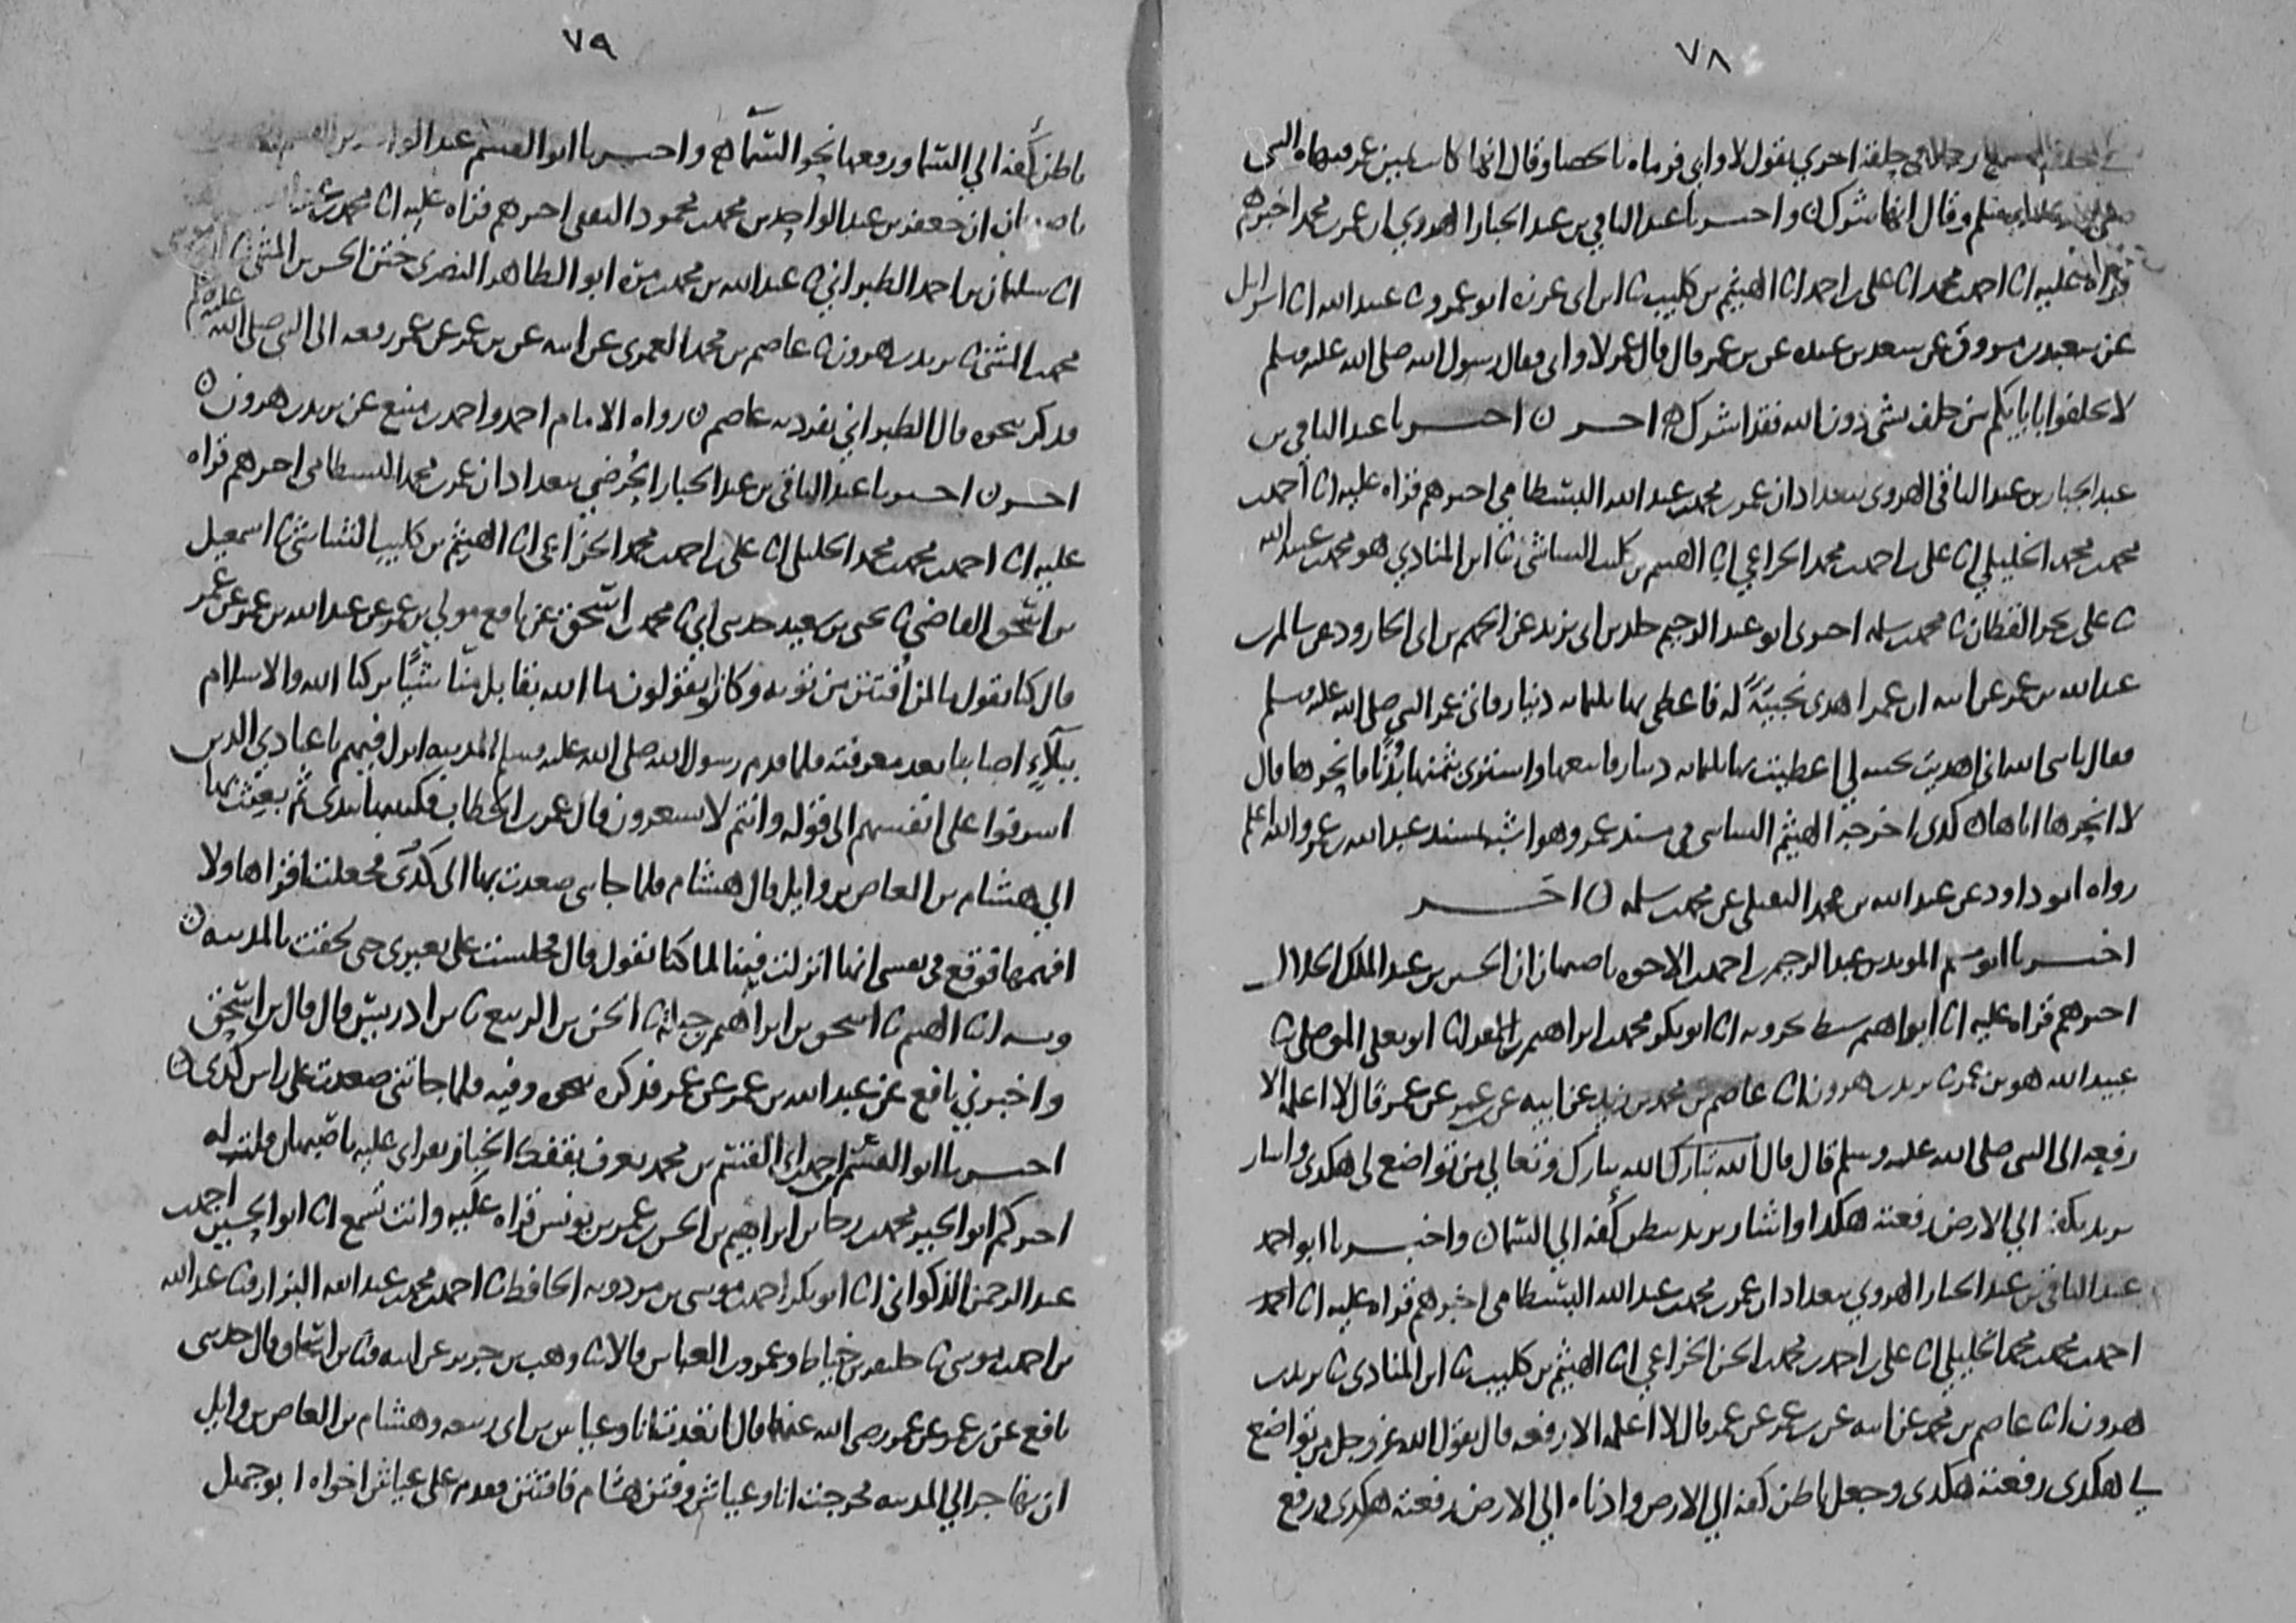 ٧٨
رجلا في حلقة اخرى يقول لا وابي فرماه بالحصا وقال انها كانت يمين عمر فنهاه النبي
صلى الله عليه وسلم وقال انها شرك ن واخبرنا عبد الباقي بن عبد الجبار الهروي ان عمر بن محمد اخبرهم
قراة عليه انا احمد بن محمد انا علي بن احمد انا الهيثم بن كليب ثنا ابن ابي غرزه ابو عمرو ثنا عبيد الله انا اسرائيل
عن سعيد بن مسروق عن سعد بن عبيده عن بن عمر قال قال عمر لا وابي فقال رسول الله صلى الله عليه وسلم
لا تحلفوا بابايكم من حلف بشي دون الله فقد اشرك ن اخر ن اخبرنا عبد الباقي بن
عبد الجبار بن عبد الباقي الهروي ببغداد ان عمر بن محمد بن عبد الله البسطامي اخبرهم قراة عليه انا احمد بن
محمد بن محمد الخليلي انا علي بن احمد بن محمد الخزاعي انا الهيثم بن كليب الشاشي ثنا ابن المنادي هو محمد بن عبيد الله
ثنا علي بن بحر القطان ثنا محمد بن سلمه اخبرني ابو عبد الرحيم خلد بن ابي يزيد عن الجهم بن ابي الجارود عن سالم بن
عبد الله بن عمر عن ابيه ان عمر اهدى نجيبة له فاعطي بها ثلثمايه دينار فاتى عمر النبي صلى الله عليه وسلم
فقال يا نبي الله اني اهديت نجيبه لي اعطيت بها ثلثمايه دينار فابيعها واشتري بثمنها بدنا فانحرها قال
لا انحرها اياها ن كذى اخرجه الهيثم الشاشي في مسند عمر وهو اشبه بمسند عبد الله بن عمر والله اعلم
رواه ابو داود عن عبد الله بن محمد النفيلي عن محمد بن سلمه ن اخر
اخبرنا ابو مسلم المويد بن عبد الرحيم بن احمد بن الاخوه باصبهان ان الحسين بن عبد الملك الخلال
اخبرهم قراة عليه انا ابراهيم سبط بحرويه انا ابو بكر محمد بن ابراهيم بن المقرى انا ابو يعلى الموصلي ثنا
عبيد الله هو بن عمر ثنا يزيد بن هرون انا عاصم بن محمد بن زيد عن ابيه عن بن عمر عن عمر قال لا اعلمه الا
رفعه الى النبي صلى الله عليه وسلم قال قال الله تبارك الله تبارك وتعالي من تواضع لي هكذى واشار
يزيد بكفه الي الارض رفعته هكذا واشار يزيد ببطن كفه الي السما ن واخبرنا ابو احمد
عبد الباقي بن عبد الجبار الهروي ببغداد ان عمر بن محمد بن عبد الله البسطامي اخبرهم قراة عليه انا احمد
احمد بن محمد بن محمد الخليلي انا علي بن احمد بن محمد بن الحسن الخزاعي انا الهيثم بن كليب ثنا ابن المنادي ثنا يزيد بن
هرون انا عاصم بن محمد عن ابيه عن بن عمر عن عمر قال لا اعلمه الا رفعه قال يقول الله عز وجل من تواضع
لي هكذى رفعته هكذى وجعل باطن كفه الي الارض وادناه الي الارض رفعته هكذى ورفع
٧٩
باطن كفه الي السما ورفعها نحو السما ن واخبرنا ابو القسم عبد الواحد بن القسم
باصبهان ان جعفر بن عبد الواحد بن محمد بن محمود الثقفي اخبرهم قراة عليه انا محمد بن عبد الله
انا سليمان بن احمد الطبراني ثنا عبد الله بن محمد بن مرة ابو الطاهر البصري ختن الحسن بن المثنى ثنا ابو موسى
محمد بن المثنى ثنا يزيد بن هرون ثنا عاصم بن محمد العمري عن ابيه عن بن عمر عن عمر رفعه الى النبي صلى الله عليه وسلم
فذكر نحوه قال الطبراني تفرد به عاصم ن رواه الامام احمد واحمد بن منيع عن يزيد بن هرون ن
اخر ن اخبرنا عبد الباقي بن عبد الجبار الحرضي ببغداد ان عمر بن محمد البسطامي اخبرهم قراة
عليه انا احمد بن محمد بن محمد الخليلي انا علي بن احمد بن محمد الخزاعي انا الهيثم بن كليب الشاشي ثنا اسمعيل
بن اسحق القاضي ثنا يحيى بن سعيد حدثني ابي ثنا محمد بن اسحق عن نافع مولي بن عمر عن عبد الله بن عمر عن عمر
قال كنا نقول ما لمن افتتن من توبه وكانوا يقولون ما الله بقابل منا شيا تركنا الله والاسلام
ببلاء اصابنا بعد معرفته فلما قدم رسول الله صلى الله عليه وسلم المدينه انزل فيهم يا عبادي الذين
اسرفوا على انفسهم الى قوله وانتم لا تشعرون قال عمر بن الخطاب فكتبتها بيدي ثم بعثت بها
الي هشام بن العاص بن وايل قال هشام فلما جاتني صعدت بها الى كدى فجعلت اقراها ولا
افهمها فوقع في نفسي انها انزلت فينا لما كنا نقول قال فجلست على بعيري حتى لحقت بالمدينه ن
وبه انا الهيثم ثنا اسحق بن ابراهيم بن جبلة ثنا الحسن بن الربيع ثنا بن ادريس قال قال بن اسحق
واخبرني نافع عن عبد الله بن عمر عن عمر فذكره نحوه وفيه فلما جاتني صعدت على راس كدى ن
اخبرنا ابو القسم احمد بن ابي القسم بن محمد يعرف بقفك الخباز بقراتي عليه باصبهان قلت له
اخبركم ابو الخير محمد بن رجا بن ابراهيم بن الحسن بن عمر بن يونس قراة عليه وانت تسمع انا ابو الحسين احمد بن
عبد الرحمن الذكواني انا ابو بكر احمد بن موسى بن مردويه الحافظ ثنا احمد بن محمد بن عبد الله البزار ثنا عبد الله
بن احمد بن موسى ثنا خليفه بن خياط وعمرو بن العباس قالا ثنا وهب بن جرير عن ابيه ثنا بن اسحاق قال حدثني
نافع عن بن عمر عن عمر رضي الله عنهما قال اتعدت انا وعياش بن ابي ربيعه وهشام بن العاص بن وايل
ان نهاجر الي المدينه فخرجت انا وعياش وفتن هشام فافتتن فقدم على عياش اخواه ابو جهل